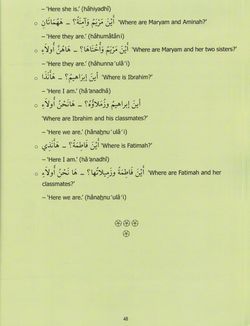 – 'Here she is.' (hāhiyadhī)
o أَيْنَ مَرْيَمُ وَآمِنَةُ؟ – هَهُمَاتَانِ 'Where are Maryam and Aminah?'
– 'Here they are.' (hāhumātāni)
o أَيْنَ مَرْيَمُ وَأُخْتَاهَا؟ – هَاهُنَّ أُولَاءِ 'Where are Maryam and her two sisters?'
– 'Here they are.' (hāhunna'ulā'i)
o أَيْنَ إِبراهِيمُ؟ – هَأَنَذَا 'Where is Ibrahim?'
– 'Here I am.' (hā'anadhā)
o أَيْنَ إِبراهِيمُ وَزُمَلَاؤُهُ؟ – هَانَحْنُ أُولَاءِ
'Where are Ibrahim and his classmates?'
– 'Here we are.' (hānaḥnu'ulā'i)
o أَيْنَ فَاطِمَةُ؟ – هَأَنَذِي 'Where is Fatimah?'
– 'Here I am.' (hā'anadhī)
o أَيْنَ فَاطِمَةُ وَزَمِيلَاتُهَا؟ – هَا نَحْنُ أُولَاءِ 'Where are Fatimah and her
classmates?'
– 'Here we are.' (hānaḥnu'ulā'i)
48